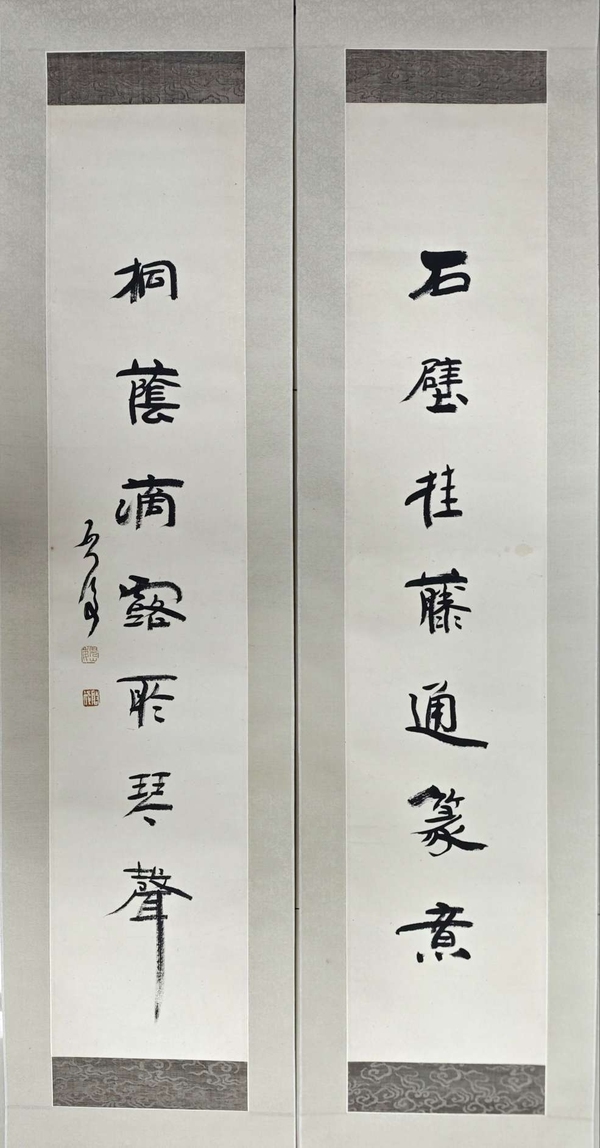 石壁挂藤通篆意
桐蔭滴露聆琴聲